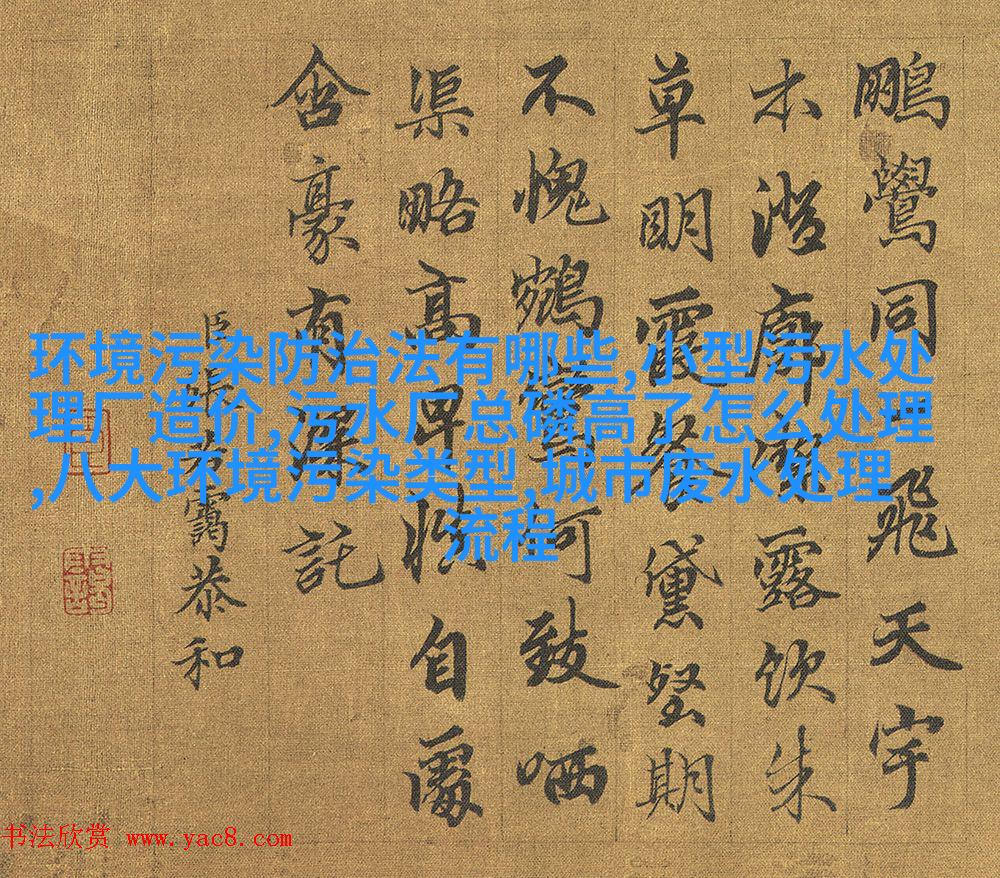 环境污染防治法有哪些,小型污水处
理厂造价,污水厂总磷高了怎么处理
,八大环境污染类型,城市废水处理
流程
鵬鷽同飛天宇
澄廓露飲朱
草明霞餐黛壑期
不愧鶴致哂
渠略高卑自
含豪有深託
臣張若靄恭和
书法欣赏 www.yac8.com